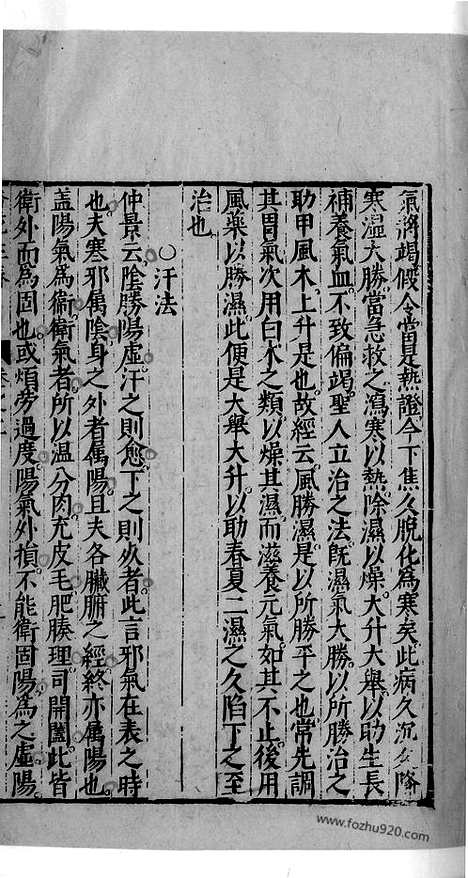 氣將竭假令當是熱證今下焦久脫化為寒矣此病久沉久降
寒溼大勝當急救之瀉寒以熱除濕以燥大升大舉以助生長
補養氣血不致偏竭聖人立治之法既濕氣大勝以所勝治之
助甲風木上升是也故經云風勝濕是以所勝平之也當先調
其胃氣次用白朮之類以燥其濕而滋養元氣如其不止後用
風藥以勝濕此便是大舉大升以助春夏二濕之久陷下之至
治也
○汗法
仲景云陰勝陽虛汗之則愈下之則死者此言邪氣在表之時
也夫寒邪屬陰身之外者屬陽且夫各臟腑之經終亦屬陽也
蓋陽氣為衞衞氣者所以溫分肉充皮毛肥腠理司開闔此皆
衛外而為固也或煩勞過度陽氣外損不能衛固陽為之虛陽
www.fozhu920.com